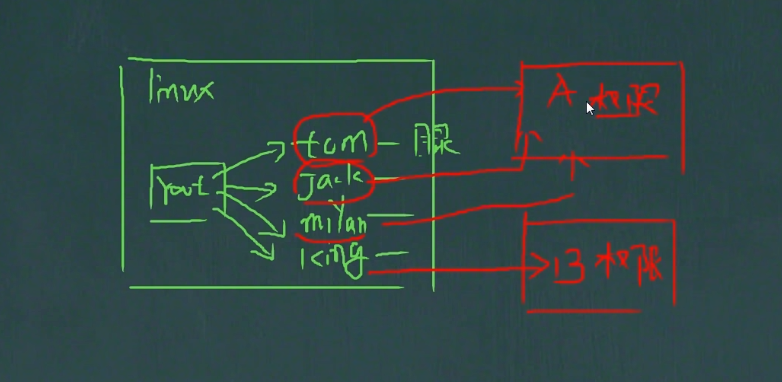 linux
root
tom
Jack
milan
king
A 权限
B 权限